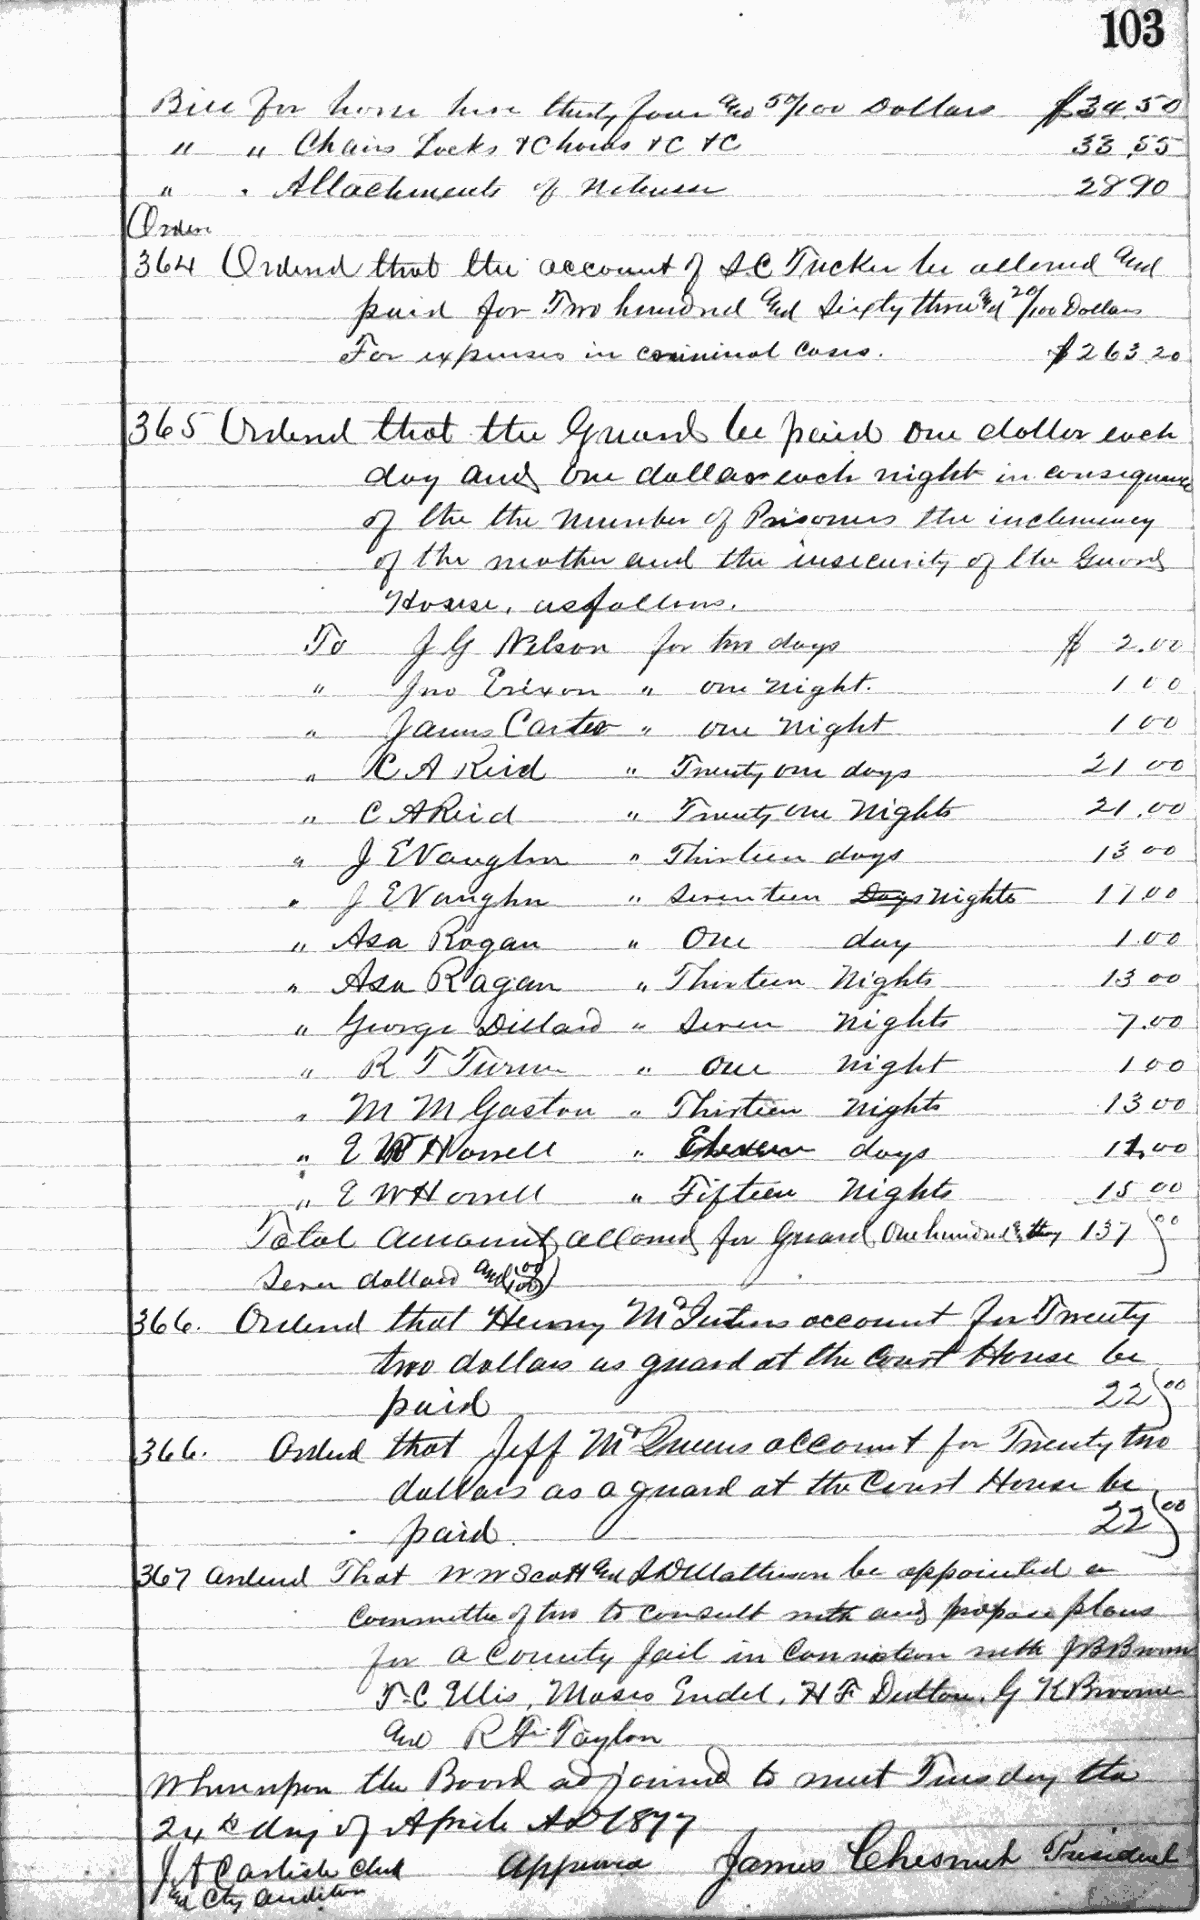 103
Bill for horse hire thirty four and 50/100 Dollars $34.50
" " Chains Locks & Chains &C &C 33.55
" " Attachments of Witnesses 28.90
Orders
364 Ordered that the account of S.C Tucker be allowed and
paid for Two hundred and Sixty three and 20/100 Dollars
For expenses in criminal cases. $263.20
365 Ordered that the Guard be paid one dollar each
day and one dollar each night in consequence
of the the number of Prisoners the inclemency
of the weather and the insecurity of the Guard
House, as follows.
To J G Nelson for two days $ 2.00
" Jno Erixon " one night. 1 00
" James Carter " one Night 1 00
" C A Reid " Twenty one days 21 00
" C A Reid " Twenty one Nights 21.00
" J E Vaughn " Thirteen days 13 00
" J E Vaughn " Seventeen Days Nights 17.00
" Asa Ragan " One day 1.00
" Asa Ragan " Thirteen Nights 13 00
" George Dillard " Seven Nights 7.00
" R T Turner " One Night 1 00
" M M Gaston " Thirteen Nights 13 00
" E W Horrell " Eleven days 11.00
" E W Horrell " Fifteen Nights 15 00
Total Amount allowed for Guard One hundred & thy 137 00
Seven dollars and 00/100
366. Ordered that Henry McQueens account for Twenty
two dollars as guard at the Court House be
paid 22 00
366. Ordered that Jeff McQueens account for Twenty two
dollars as a guard at the Court House be
paid. 22 00
367 Ordered That W W Scott and S D Matheson be appointed a
Committee of two to consult with and propose plans
for a County Jail in Connection with J B Brown
T.C Ellis, Moses Endel, H F Dutton, G K Broome
and R F Taylor
Whereupon the Board adjourned to meet Tuesday the
24th day of April AD 1877
J A Carlisle Clerk Approved James Chesnut President
and Cty Auditor